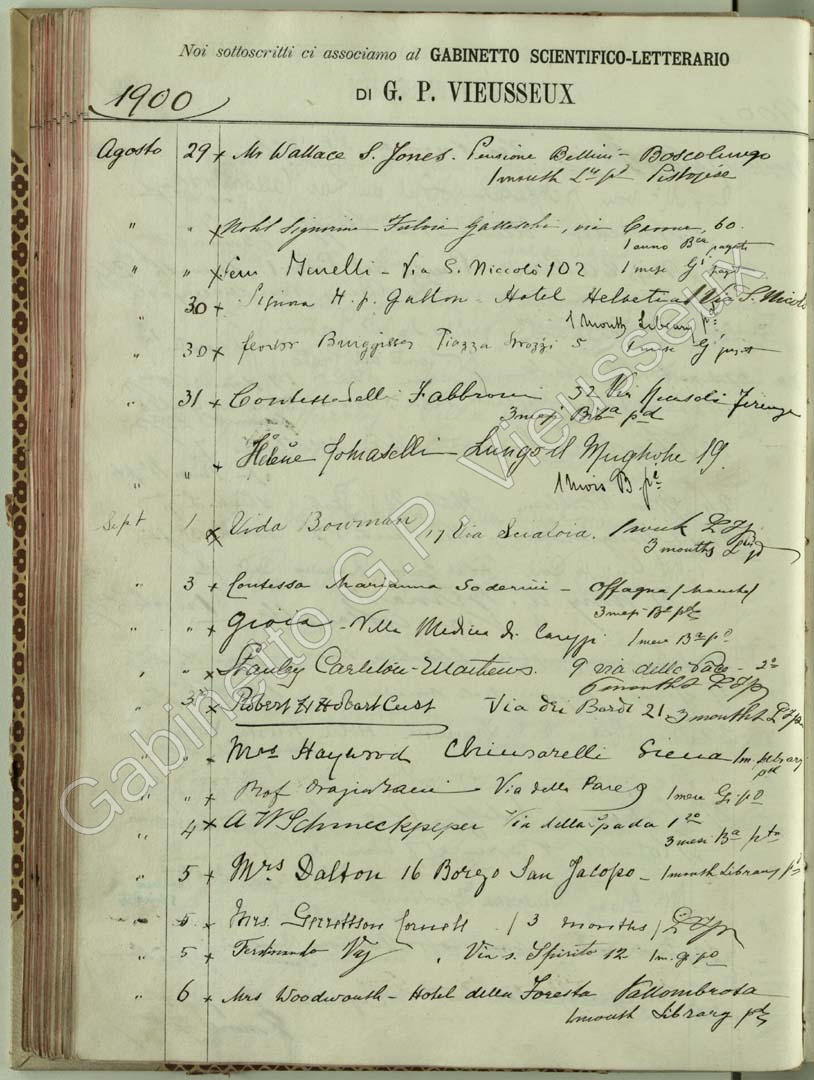 Noi sottoscritti ci associamo al GABINETTO SCIENTIFICO-LETTERARIO
1900
DI G. P. VIEUSSEUX
Agosto 29 x Mr Wallace S. Jones. Pensione Bellini - Boscolungo
1 month Ly pd Pistojese
" " x Nobl Signorina Fulvia via 60.
1 anno Bca pagato
" " x Minelli - Via S. Niccolò 102 1 mese Gi pag
" 30 Signora H. J. Gallon Hotel Helvetia Via S. Nicolo
1 Month Library pd
" 30 x Piazza Strozzi 5 1 mese Gi pagato
" 31 x Contessa delli Fabbroni 32 Via Firenze
3 mesi Bib a pd
" " x Hélène Tomaselli - Lung' il Mughone 19.
1 Mois B. pé
Sept 1 x Vida Bowman 17 Via Scialoia. 1 week L & J p
3 months L pd
" 3 x Contessa Marianna Soderini - Offagna (Marche)
3 mesi Ba pto
" " x Gioia - Villa Medicea di Careggi 1 mese Ba po
" " x Stanley Carleton-Mathews. 9 via della Pace - 2o
6 months L & J p
" 3 x Robert H Hobart Cust Via dei Bardi 21 3 months L & J p
" " x Mrs Haywood Chiusarelli Siena 1 m. library
pd
" " x Prof Via della Pace 9 1 mese Gi. po
" 4 x A W Schmeckpeper Via della Spada 1 2o
3 mesi Ba pto
" 5 x Mrs Dalton 16 Borgo San Jacopo - 1 month Library pd
" 5 x Mrs. Gerrettson Cornell / 3 months / L & J p
" 5 x Ferdinando Vaj, Via S. Spirito 12 1 m. gi po
" 6 x Mrs Woodworth - Hotel della Foresta Vallombrosa
1 month Library pd
Gabinetto G.P. Vieusseux